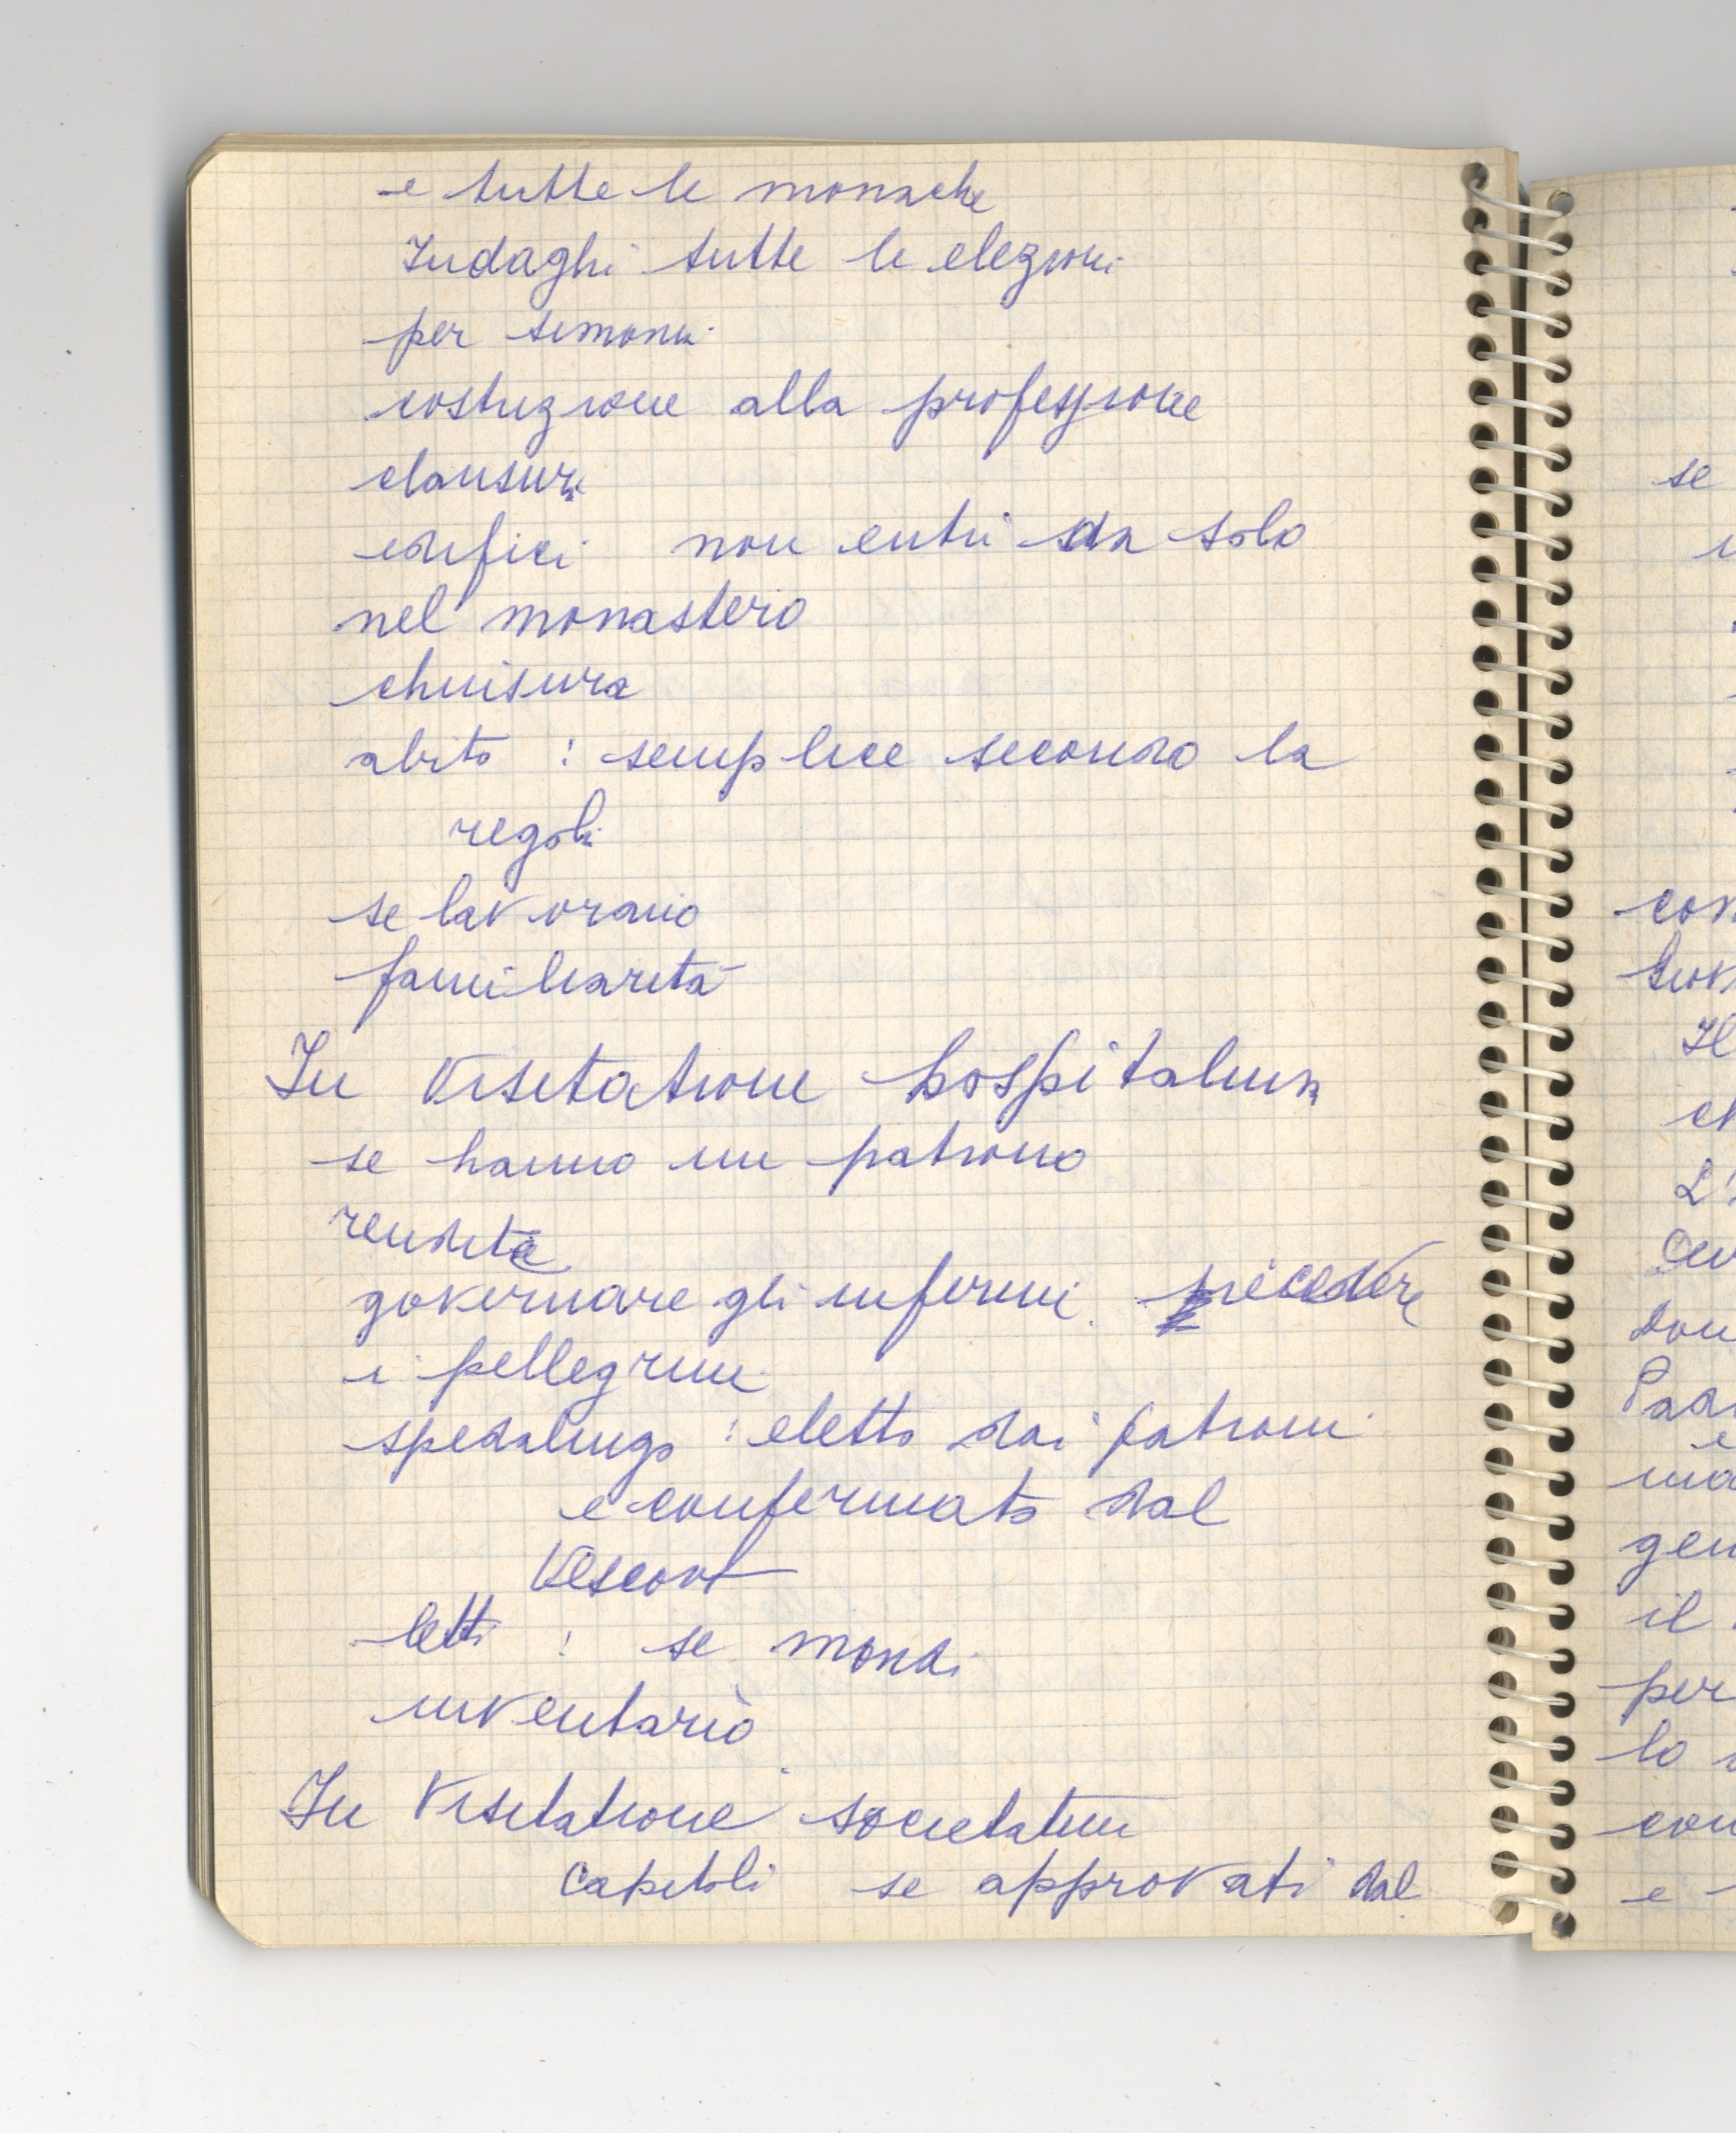 e tutte le monache
Indaghi tutte le elezioni
per simonia
costrizione alla professione
clausura
edifici non entri da solo
nel monastero
chiusura
abito : semplice secondo la
regola
se lavorano
familiarità
In Visitatione hospitalium
se hanno un patrono
rendite
governare gli infermi.
i pellegrini
spedalingo : eletto dai patroni
e confermato dal
Vescovo
letti : se mondi
inventario
In Visitatione societatum
Capitoli se approvati dal
se
Il
il
per
lo
e